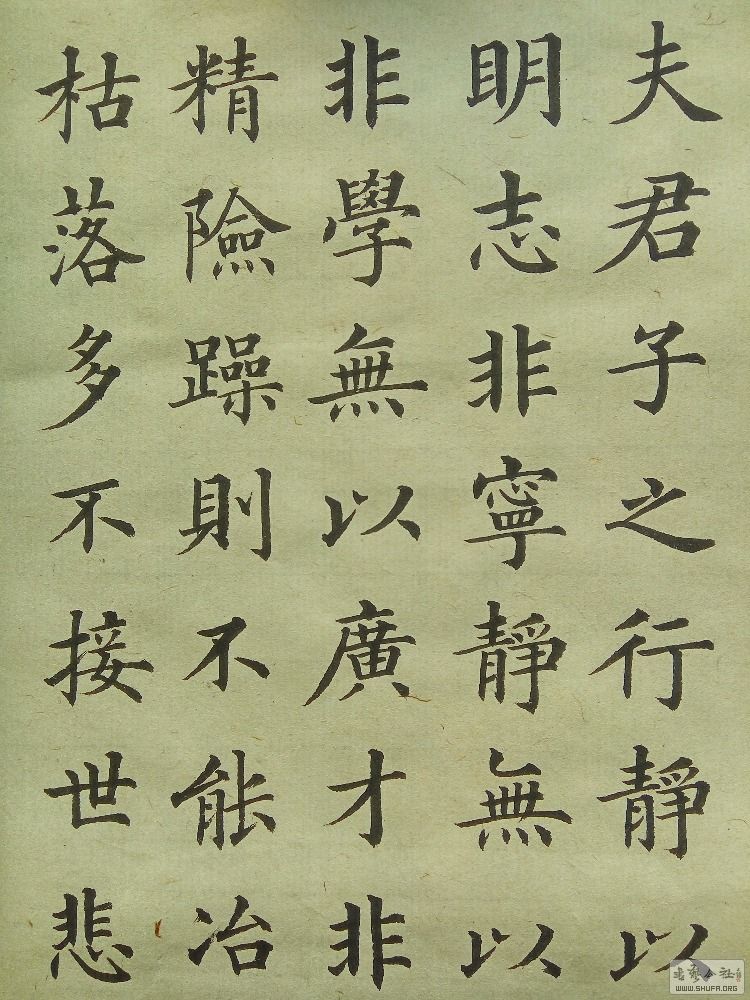 夫君子之行靜以
明志非寧靜無以
非學無以廣才非
精險躁則不能冶
枯落多不接世悲
WWW.SHUFA.ORG